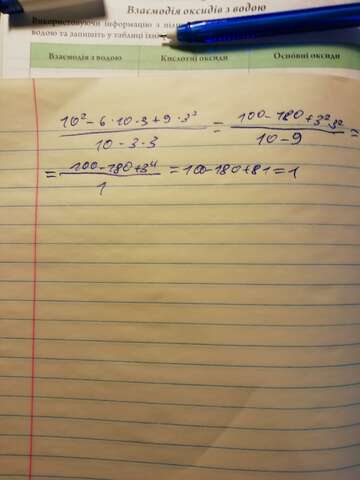 Взаємодія оксидів з водою
Використовуючи інформацію з
водою та запишіть у таблиці
Взаємодія з водою Кислотні оксиди Основні оксиди
(10² - 6·10·3 + 9·3²)/(10 - 3·3) = (100 - 180 + 3²·3²)/(10 - 9) =
= (100 - 180 + 3⁴)/1 = 100 - 180 + 81 = 1